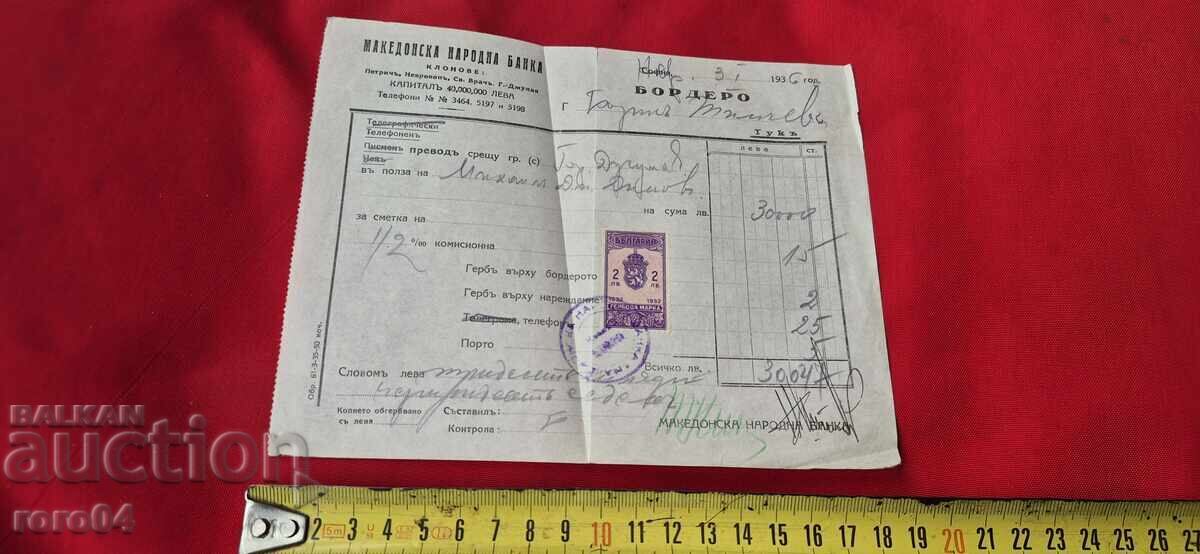 МАКЕДОНСКА НАРОДНА БАНКА
КЛОНОВЕ:
Петричъ, Неврокопъ, Св. Врачъ, Г.-Джумая
КАПИТАЛЪ 40,000,000 ЛЕВА
Телефони № № 3464, 5197 и 5198
София, 3 I 1936 год.
БОРДЕРО
Г
Тукъ
Телеграфически
Телефоненъ
Писменъ преводъ срещу гр. (с)
Чекъ
въ полза на Михаил Дим. Димов
лева ст.
за сметка на на сума лв. 30000
1/2 º/₀₀ комисионна 15
Гербъ върху бордерото
Гербъ върху нареждане 2
Телеграма, телефон 25
Порто
Всичко лв. 30.047
Словомъ лева тридесет хиляди
четиридесетъ седем
Копието обгербвано
съ лева
Съставилъ:
Контрола:
МАКЕДОНСКА НАРОДНА БАНКА
Обр. 61-3-35-50 коч.
БЪЛГАРИЯ
2 2
ЛВ. ЛВ.
1932 1932
ГЕРБОВА МАРКА
BALKAN
auction
roro04
2 5m 3 4 5 6 7 8 9 10 11 12 13 14 15 16 17 18 19 20 21 22 23 24 25 26 2